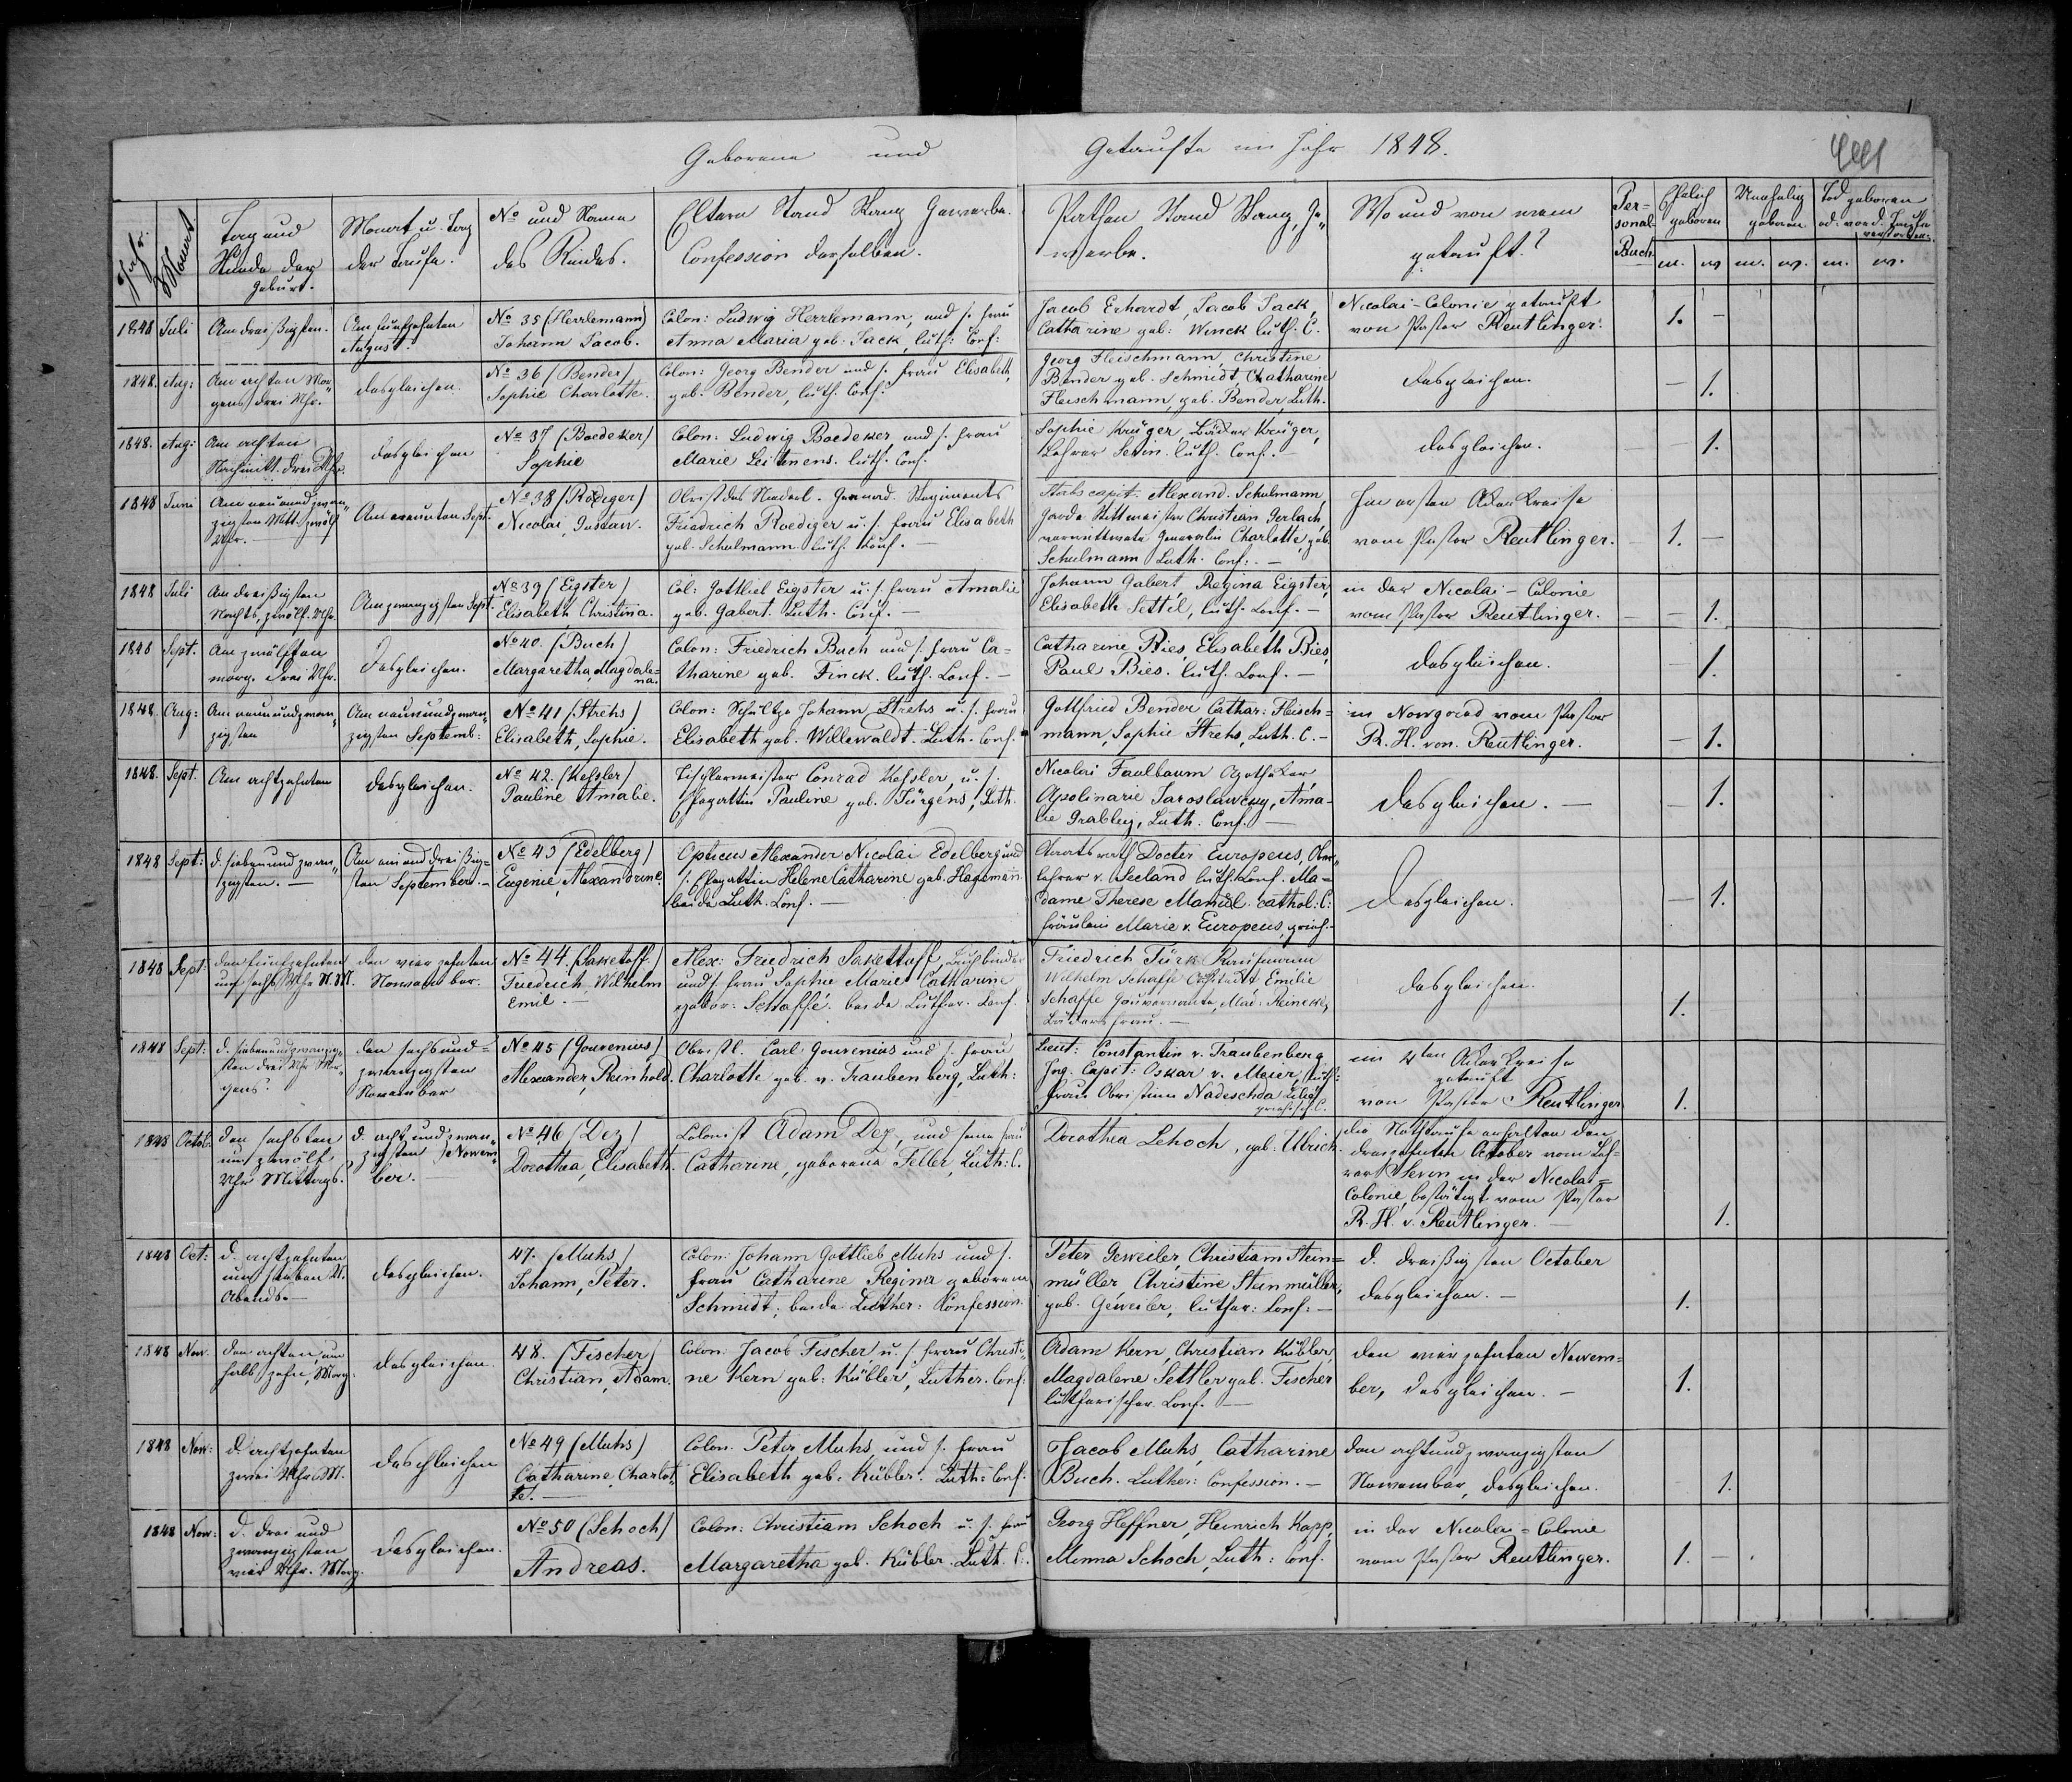 Geborene und Getaufte im Jahr 1848.
Jahr.
Monat
Tag und
Stunde der
Geburt.
Monat u. Tag
der Taufe.
No und Name
des Kindes.
Eltern Stand Rang Gewerbe.
Confession derselben.
Pathen Stand Rang, Ge„
werbe.
Wo und von wem
getauft?
Per=
sonal-
Buch.
Ehelich
geboren
Unehelig
geboren
Tod geboren
od. vor d. Taufe
verstorben.
m. w m. w. m. w.
1848 Juli
Am dreißigsten.
Am funfzehnten
August.
No 35 (Herrlemann)
Johann Jacob.
Colon: Ludwig Herrlemann, und s. Frau
Anna Maria geb. Jack, luth: Conf:
Jacob Erhardt, Jacob Jack,
Catharine geb: Winck luth. C.
Nicolai-Colonie getauft
von Pastor Reutlinger.
1. –
1848. Aug:
Am achten Mor„
gens drei Uhr.
desgleichen.
No 36 (Bender)
Sophie Charlotte.
Colon: Georg Bender und s. Frau Elisabeth,
geb. Bender, luth. Conf.
Georg Fleischmann, Christine
Bender geb. Schmidt, Chatharine
Fleischmann, geb. Bender, Luth.
desgleichen.
– 1.
1848. Aug:
Am achten
Nachmitt. drei Uhr.
desgleichen
No 37 (Boedeker)
Sophie
Colon: Ludwig Boedeker und s. Frau
Marie Leitnens. luth. Conf.
Sophie Krüger, Bäcker Krüger,
Lehrer Sevin. luth. Conf. –
desgleichen.
– 1.
1848 Juni
Am neunundzwan„
zigsten Mitt. zwölf
Uhr. –
Am neunten Sept.
No 38 (Roediger)
Nicolai, Gustav.
Obrist des Niederl. Grenad. Regiments
Friedrich Roediger u. s. Frau Elisabeth
geb. Schulmann luth. Conf. –
Stabscapit. Alexand. Schulmann,
Garde Rittmeister Christian Gerlach,
verwittwete Generalin Charlotte, geb.
Schulmann Luth. Conf. –
Im ersten Ackerkreise
vom Pastor Reutlinger.
1. –
1848 Juli
Am dreißigsten
Nachts, zwölf Uhr.
Am zwanzigsten Sept.
No 39 (Eigster)
Elisabeth, Christina.
Col: Gottlieb Eigster u. s. Frau Amalie
geb. Gabert. Luth. Conf. –
Johann Gabert, Regina Eigster,
Elisabeth Settel, luth. Conf. –
in der Nicolai-Colonie
vom Pastor Reutlinger.
– 1.
1848 Sept.
Am zwölften
morg. drei Uhr.
Desgleichen.
No 40. (Buch)
Margaretha, Magdale=
na.
Colon: Friedrich Buch und s. Frau Ca=
tharine geb. Finck. luth. Conf. –
Catharine Bies, Elisabeth Bies,
Paul Bies. luth. Conf. –
desgleichen.
– 1.
1848. Aug:
Am neunundzwan„
zigsten
Am neunundzwan„
zigsten Septemb:
No 41 (Strehs)
Elisabeth, Sophie.
Colon: Schultze Johann Strehs u. s. Frau
Elisabeth geb. Willewaldt. Luth. Conf.
Gottfried Bender, Cathar: Fleisch=
mann, Sophie Strehs, Luth. C. –
in Nowgorod vom Pastor
R. H. von Reutlinger.
– 1.
1848. Sept.
Am achtzehnten
desgleichen.
No 42. (Kessler)
Pauline Amalie.
Tischlermeister Conrad Kessler, u. s.
Ehegattin Pauline geb. Jürgens, Luth.
Nicolai Faulbaum Apotheker,
Apolinarie Jaroslawsky, Ama-
lie Grabbey, Luth. Conf. –
Desgleichen. –
– 1.
1848 Sept:
d. siebenundzwan„
zigsten. –
Am einunddreißig=
sten September. –
No 43 (Edelberg)
Eugenie, Alexandrine.
Opticus Alexander Nicolai Edelberg und
s. Ehegattin Helene Catharine geb. Hagemann
beide Luth. Conf. –
Staatsrath Docter Europeus, Ober„
lehrer v. Seeland luth. Conf. Ma=
dame Therese Manúl. cathol: C:
Fräulein Marie v. Europeus, griech. –
Desgleichen.
– 1.
1848 Sept:
den funfzehnten
um sechs Uhr N. M.
den vierzehnten
November.
No 44. (Sakettoff)
Friedrich Wilhelm
Emil –
Alex: Friedrich Sakettoff, Buchbinder
und s. Frau Sophie Marie Catharine
gebor. Schaffé. beide Luther. Conf.
Friedrich Türk Kaufmann
Wilhelm Schaffe Emilie
Schaffe Gouvernante, Mad: Reinecke,
Bäckersfrau. –
desgleichen.
1.
1848 Sept:
d. siebenundzwanzig„
sten drei Uhr Mor„
gens.
den sechsund=
zwanzigsten
November
No 45 (Gouvenius)
Alexander, Reinhold.
Obristl. Carl Gouvenius und s. Frau
Charlotte geb. v. Traubenberg, Luth:
Lieut: Constantin v. Traubenberg
Ing. Capit: Oskar v. Meier, Luth:
Frau Obristinn Nadeschda
griechisch. C.
im 4ten Ackerkreise
getauft
von Pastor Reutlinger
1.
1848 Octob:
den sechsten
um zwölf
Uhr Mittags.
d. acht und zwan„
zigsten Novem„
ber. –
No 46 (Dez)
Dorothea, Elisabeth.
Colonist Adam Dez, und seine Frau
Catharine, geborene Feller, Luth: C.
Dorothea Schoch, geb: Ulrich.
die Nothtaufe erhalten den
dreizehnten October vom Leh=
rer Sevin in der Nicolai=
Colonie, bestätigt vom Pastor
R. H. v. Reutlinger. –
1.
1848 Oct:
d. achtzehnten
um sieben U.
Abends. –
desgleichen.
47. (Muhs)
Johann, Peter.
Colon: Johann Gottlieb Muhs und s.
Frau Catharine Regina geborene
Schmidt, beide Luther: Konfession.
Peter Geweiler, Christian Stein=
müller, Christine Steinmüller,
geb. Geweiler, luther: Conf: –
d. dreißigsten October
desgleichen. –
1.
1848 Nov.
den achten, um
halb zehn, Morg.
desgleichen.
48. (Fischer)
Christian, Adam.
Colon: Jacob Fischer u. s. Frau Christi„
ne Kern geb: Kübler, Luther. Conf:
Adam Kern, Christian Kübler,
Magdalene Settler geb. Fischer
lutherischer Conf. –
den vierzehnten Novem=
ber, desgleichen. –
1.
1848 Nov:
d. achtzehnten
zwei Uhr M.
desgleichen
No 49 (Muhs)
Catharine, Charlot„
te. –
Colon. Peter Muhs und s. Frau
Elisabeth geb. Kübler. Luth: Conf.
Jacob Muhs, Catharine
Buch. Luther: Confession. –
den achtundzwanzigsten
November, desgleichen.
1.
1848 Nov:
d. drei und
zwanzigsten
vier Uhr. Morg.
desgleichen.
No 50 (Schoch)
Andreas.
Colon: Christian Schoch u. s. Frau
Margaretha geb. Kübler. Luth. C.
Georg Heffner, Heinrich Kapp,
Minna Schoch, Luth: Conf.
in der Nicolai=Colonie
vom Pastor Reutlinger.
1. –